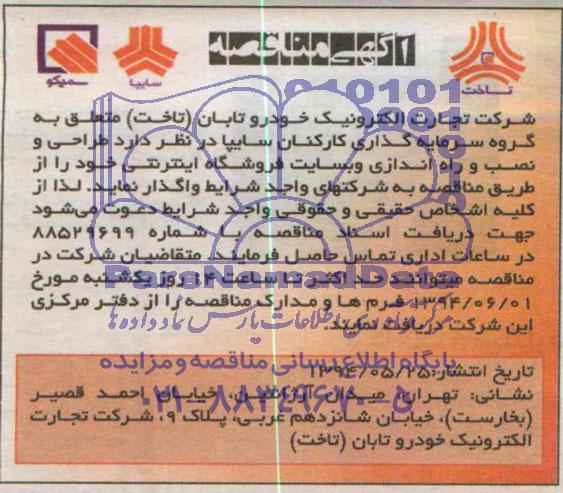 آگهی مناقصه
تاخت
سایپا
سمیکو
شرکت تجارت الکترونیک خودرو تابان (تاخت) متعلق به
گروه سرمایه گذاری کارکنان سایپا در نظر دارد طراحی و
نصب و راه اندازی وبسایت فروشگاه اینترنتی خود را از
طریق مناقصه به شرکتهای واجد شرایط واگذار نماید. لذا از
کلیه اشخاص حقیقی و حقوقی واجد شرایط دعوت می‌شود
جهت دریافت اسناد مناقصه با شماره ۸۸۵۲۹۶۹۹
در ساعات اداری تماس حاصل فرمایند. متقاضیان شرکت در
مناقصه میتوانند حداکثر تا ساعت ۱۴ روز یکشنبه مورخ
۱۳۹۴/۰۶/۰۱ فرم ها و مدارک مناقصه را از دفتر مرکزی
این شرکت دریافت نمایند.
تاریخ انتشار: ۱۳۹۴/۰۵/۲۵
نشانی: تهران، میدان آرژانتین، خیابان احمد قصیر
(بخارست)، خیابان شانزدهم غربی، پلاک ۹، شرکت تجارت
الکترونیک خودرو تابان (تاخت)
ParsNamadData
پایگاه اطلاع رسانی مناقصه و مزایده
۰۲۱-۸۸۳۴۹۶۷۰-۵